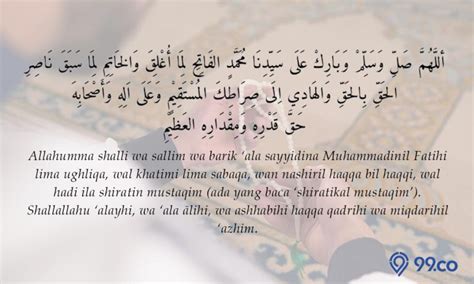 اَللَّهُمَّ صَلِّ وَسَلِّمْ وَبَارِكْ عَلَى سَيِّدِنَا مُحَمَّدٍ الفَاتِحِ لِمَا أُغْلِقَ وَالخَاتِمِ لِمَا سَبَقَ نَاصِرِ
الحَقِّ بِالحَقِّ وَالهَادِي إِلَى صِرَاطِكَ المُسْتَقِيْمِ وَعَلَى آلِهِ وَأَصْحَابِه
حَقَّ قَدْرِهِ وَمِقْدَارِهِ العَظِيْمِ
Allahumma shalli wa sallim wa barik ‘ala sayyidina Muhammadinil Fatihi
lima ughliqa, wal khatimi lima sabaqa, wan nashiril haqqa bil haqqi, wal
hadi ila shiratin mustaqim (ada yang baca ‘shiratikal mustaqim’).
Shallallahu ‘alayhi, wa ‘ala ālihi, wa ashhabihi haqqa qadrihi wa miqdarihil
‘azhim.
99.co